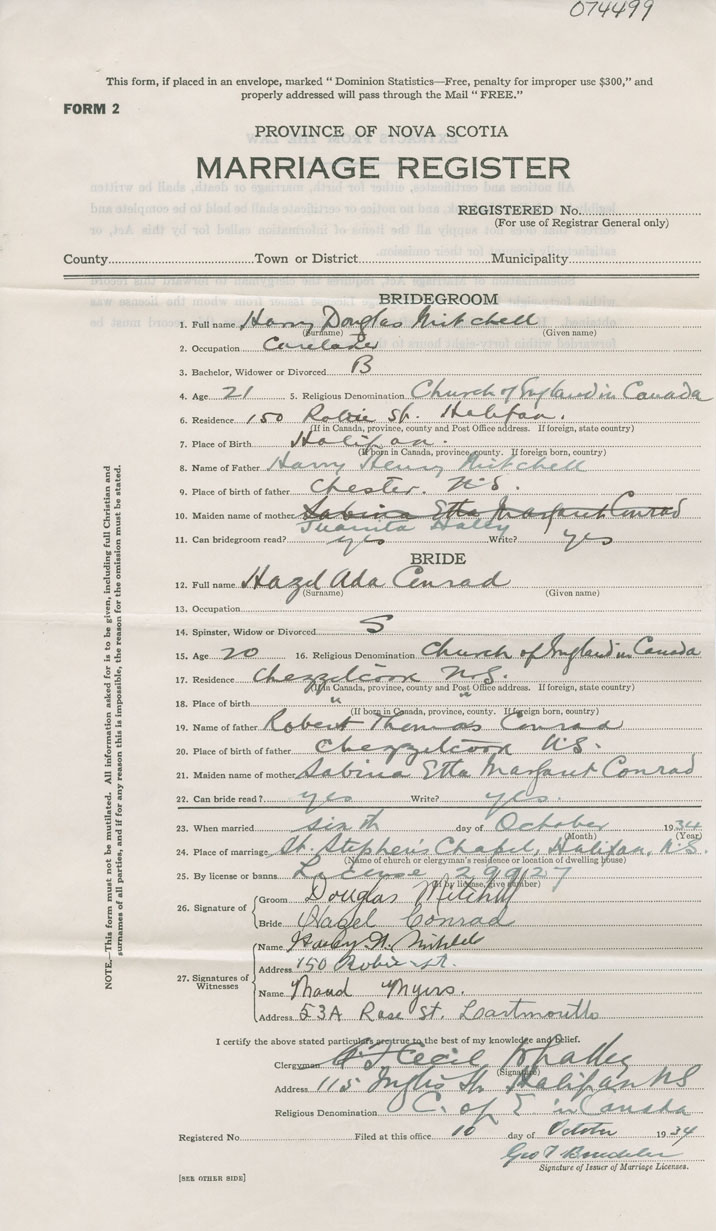 074499
This form, if placed in an envelope, marked " Dominion Statistics—Free, penalty for improper use $300," and
properly addressed will pass through the Mail " FREE."
FORM 2
PROVINCE OF NOVA SCOTIA
MARRIAGE REGISTER
REGISTERED No.
(For use of Registrar General only)
County Town or District Municipality
BRIDEGROOM
1. Full name Harry Douglas Mitchell
(Surname) (Given name)
2. Occupation
3. Bachelor, Widower or Divorced B
4. Age 21 5. Religious Denomination Church of England in Canada
6. Residence 150 Robie St. Halifax.
(If in Canada, province, county and Post Office address. If foreign, state country)
7. Place of Birth Halifax.
(If born in Canada, province, county. If foreign born, county)
8. Name of Father Harry Henry Mitchell
9. Place of birth of father Chester. N.S.
10. Maiden name of mother Sabina Etta Margaret Conrad
Juanita
11. Can bridegroom read? yes Write? yes
BRIDE
12. Full name Hazel Ada Conrad
(Surname) (Given name)
13. Occupation
14. Spinster, Widow or Divorced S
15. Age 20 16. Religious Denomination Church of England in Canada
17. Residence Chezzetcook N.S.
(If in Canada, province, county and Post Office address. If foreign, state country)
18. Place of birth " "
(If born in Canada, province, county. If foreign born, country)
19. Name of father Robert Thomas Conrad
20. Place of birth of father Chezzetcook N.S.
21. Maiden name of mother Sabina Etta Margaret Conrad
22. Can bride read? yes Write? yes.
23. When married sixth day of October 1934
(Month) (Year)
24. Place of marriage St. Stephen's Chapel, Halifax, N.S.
(Name of church or clergyman's residence or location of dwelling house)
25. By license or banns License 29927
(If by license, give number)
26. Signature of
Groom Douglas Mitchell
Bride Hazel Conrad
27. Signatures of Witnesses
Name Mitchell
Address 150 Robie st.
Name Maud Myers.
Address 53A Rose St. Dartmouth
I certify the above stated particulars are true to the best of my knowledge and belief.
Clergyman Cecil
(Signature)
Address 115 Inglis St. Halifax NS
Religious Denomination C. of E in Canada
Registered No. Filed at this office 10 day of October 1934
Geo T
Signature of Issuer of Marriage Licenses.
[SEE OTHER SIDE]
NOTE.—This form must not be mutilated. All information asked for is to be given, including full Christian and
surnames of all parties, and if for any reason this is impossible, the reason for the omission must be stated.